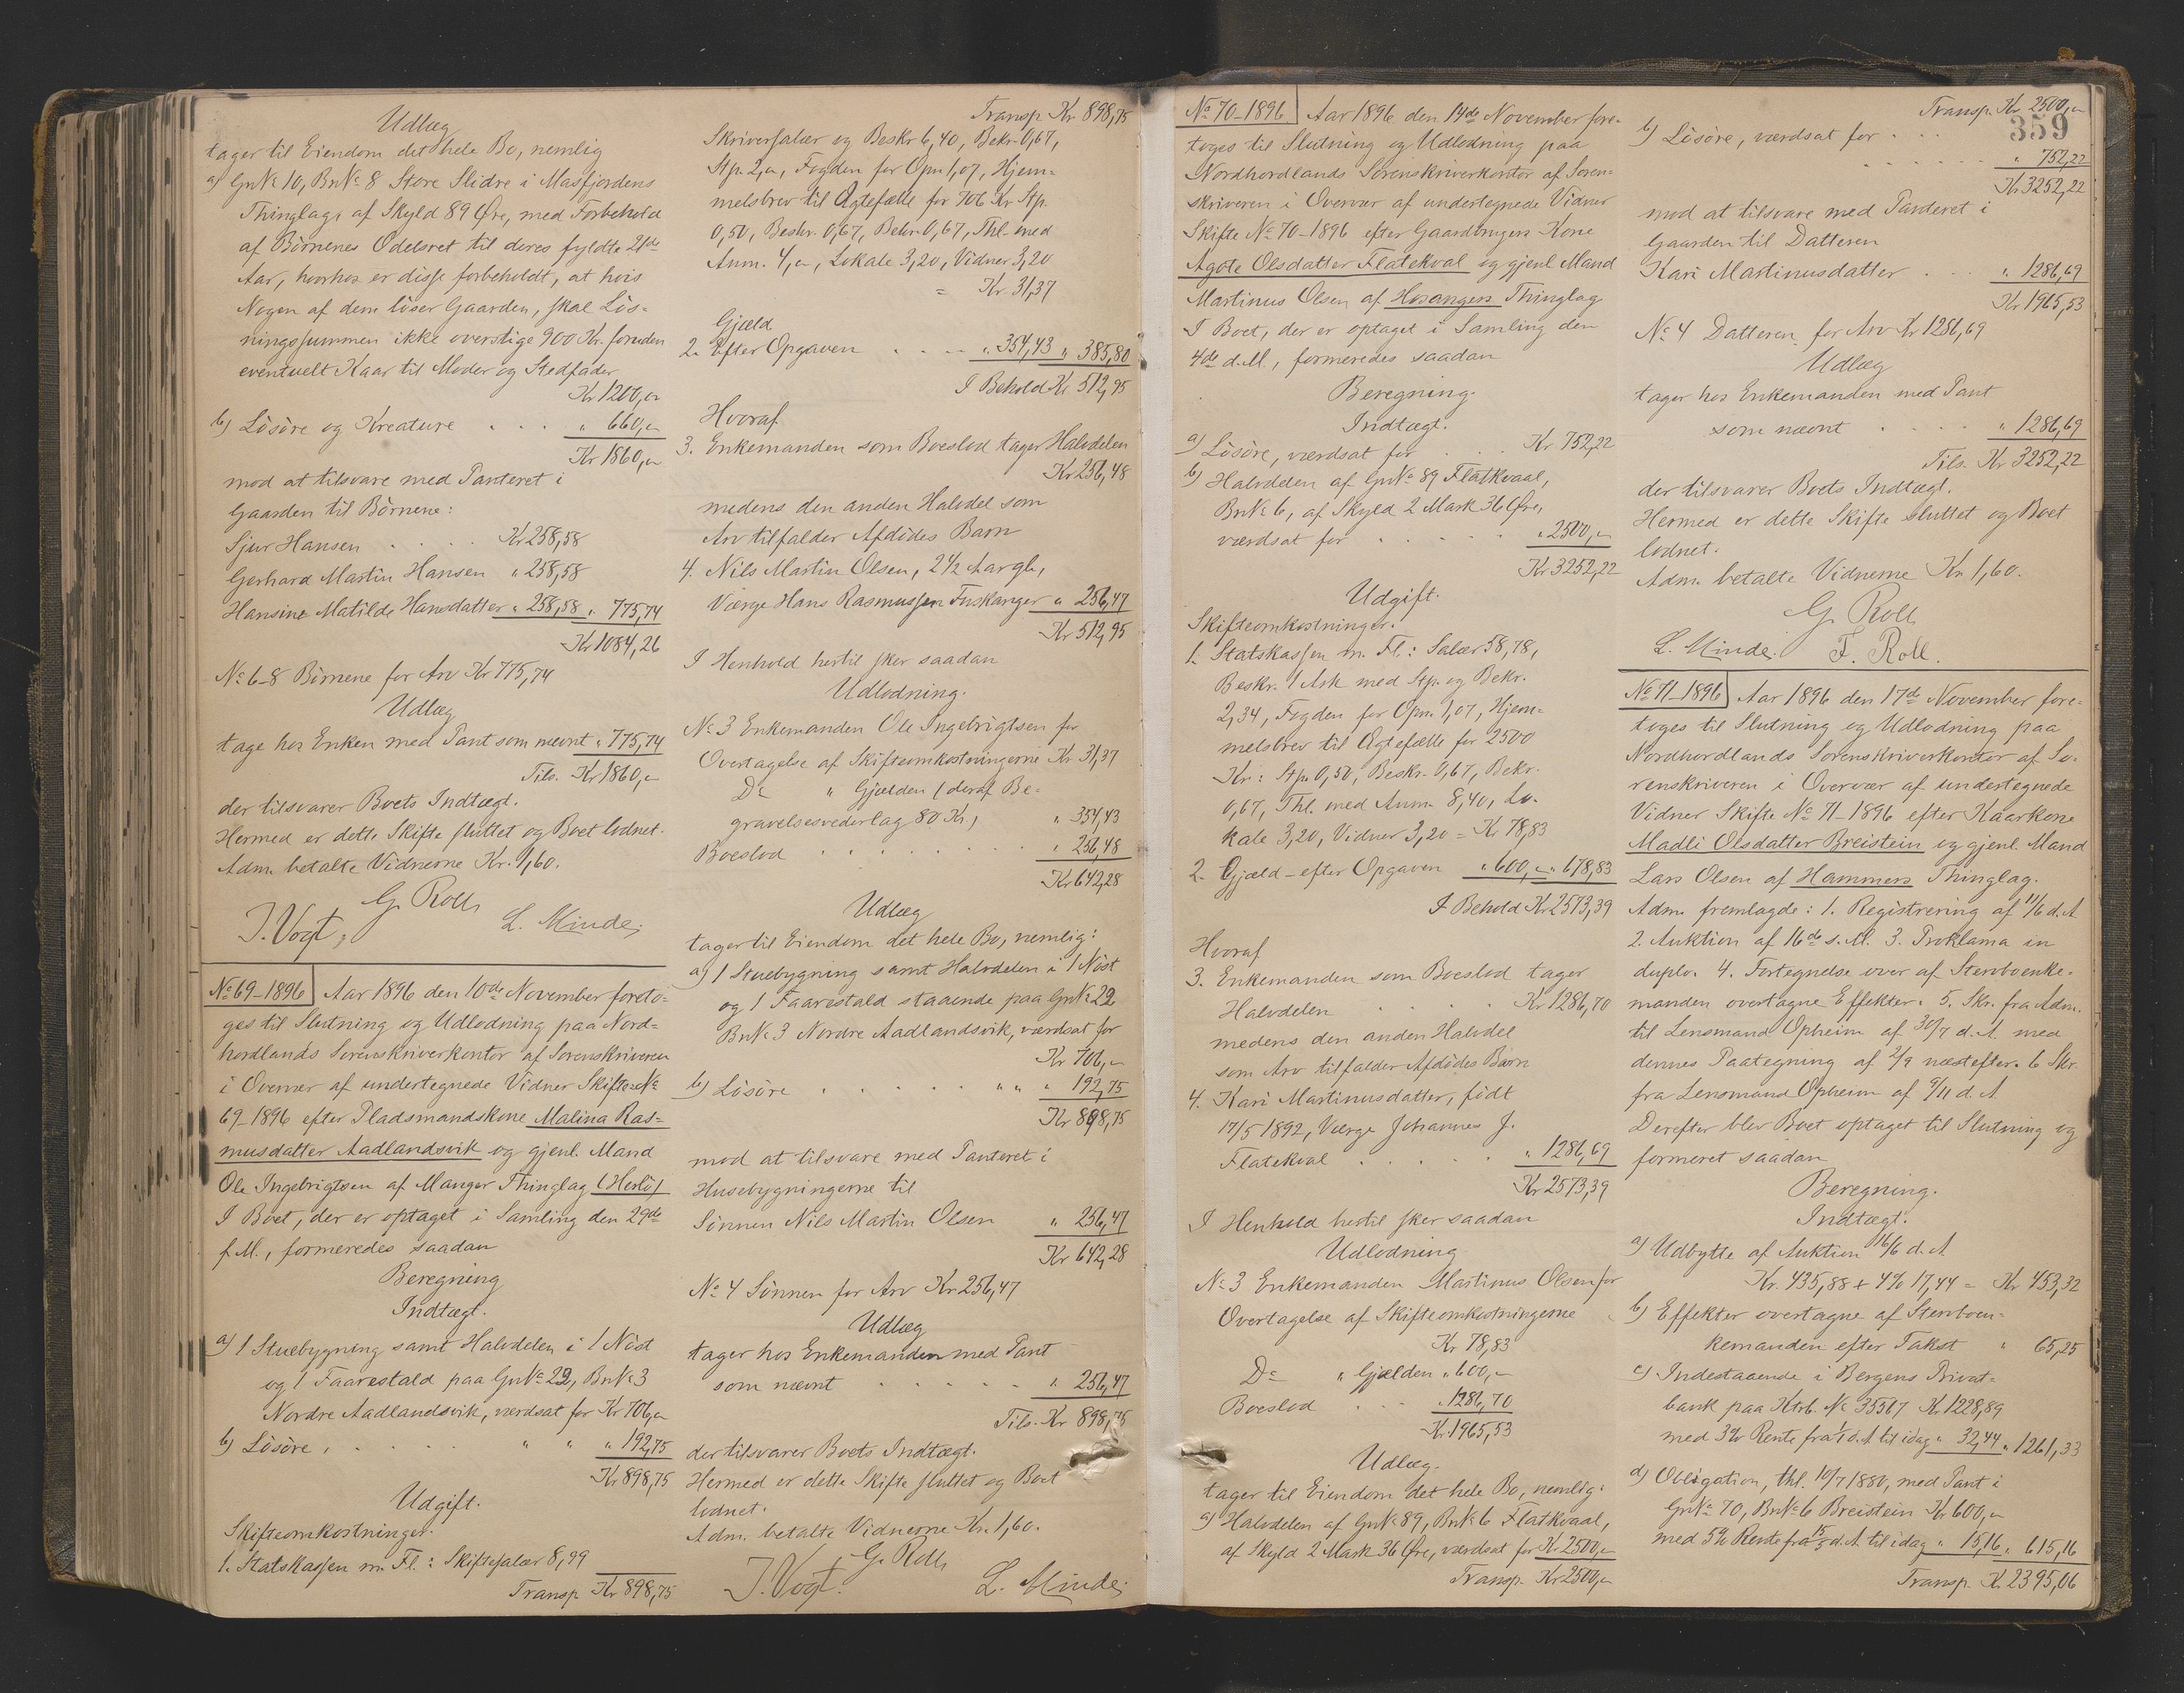 Udlæg
tager til Eiendom det hele Bo, nemlig
a) GnNo 10, BnNo 8 Store Slidre i Masfjordens
Thinglag, af Skyld 89 Øre, med Forbehold
af Börnenes Odelsret til deres fyldte 21de
Aar, hvorhos er disse forbeholdt, at hvis
Nogen af dem löser Gaarden, skal Lös-
ningssummen ikke overstige 900 Kr. foruden
eventuelt Kaar til Moder og Stedfader
Kr 1200,"
b) Lösöre og Kreature . . . " 660,"
Kr 1860,"
mod at tilsvare med Panteret i
Gaarden til Börnene:
Sjur Hansen . . . . Kr 258,58
Gerhard Martin Hansen " 258,58
Hansine Matilde Hansdatter " 258,58 " 775,74
Kr 1084,26
No 6-8 Börnene for Arv Kr 775,74
Udlæg
tage hos Enken med Pant som nævnt " 775,74
Tils. Kr 1860,"
der tilsvarer Boets Indtægt.
Hermed er dette Skifte sluttet og Boet lodnet.
Adm. betalte Vidnerne Kr. 1,60.
G. Roll
J. Vogt. L. Minde.
No 69-1896 Aar 1896 den 10de November foreto-
ges til Slutning og Udlodning paa Nord-
hordlands Sorenskriverkontor af Sorenskriveren
i Overvær af undertegnede Vidner Skifte No
69-1896 efter Pladsmandskone Malina Ras-
musdatter Aadlandsvik og gjenl. Mand
Ole Ingebrigtsen af Manger Thinglag (Herlö)
I Boet, der er optaget i Samling den 29de
f. M., formeredes saadan
Beregning
Indtægt.
a) 1 Stuebygning samt Halvdelen i 1 Nöst
og 1 Faarestald paa GnNo 22, BnNo 3
Nordre Aadlandsvik, værdsat for Kr 706,"
b) Lösöre, . . . . " " " 192,75
Kr 898,75
Udgift.
Skifteomkostninger.
1. Statskassen m. Fl.: Skiftesalær 8,99
Transp. Kr 898,75
Transp. Kr 898,75
Skriversalær og Beskr 6,40, Bekr. 0,67,
Stp. 2,", Fogden for Opn 1,07, Hjem-
melsbrev til Ægtefælle for 706 Kr Stp.
0,50, Beskr. 0,67, Bekr. 0,67, Thl. med
Anm. 4,", Lokale 3,20, Vidner 3,20
= Kr 31,37
Gjæld
2. Efter Opgaven . . . . " 354,43 " 385,80
I Behold Kr 512,95
Hvoraf
3. Enkemanden som Boeslod tager Halvdelen
Kr 256,48
medens den anden Halvdel som
Arv tilfalder Afdödes Barn
4. Nils Martin Olsen, 2 1/2 Aar gl.,
Værge Hans Rasmussen Fuskanger " 256,47
Kr 512,95
I Henhold hertil sker saadan
Udlodning.
No 3 Enkemanden Ole Ingebrigtsen for
Overtagelse af Skifteomkostningerne Kr 31,37
Do " Gjælden (deraf Be-
gravelsesvederlag 80 Kr) " 354,43
Boeslod . . . . . . " 256,48
Kr 642,28
Udlæg
tager til Eiendom det hele Bo, nemlig:
a) 1 Stuebygning samt Halvdelen i 1 Nöst
og 1 Faarestald staaende paa GnNo 22
BnNo 3 Nordre Aadlandsvik, værdsat for
Kr 706,"
b) Lösöre . . . . . " " " 192,75
Kr 898,75
mod at tilsvare med Panteret i
Husebygningerne til
Sönnen Nils Martin Olsen " 256,47
Kr 642,28
No 4 Sönnen for Arv Kr 256,47
Udlæg
tager hos Enkemanden med Pant
som nævnt . . . . . " 256,47
Tils. Kr 898,75
der tilsvarer Boets Indtægt.
Hermed er dette Skifte sluttet og Boet
lodnet.
Adm. betalte Vidnerne Kr. 1,60.
G. Roll
J. Vogt. L. Minde.
No 70-1896 Aar 1896 den 14de November fore-
toges til Slutning og Udlodning paa
Nordhordlands Sorenskriverkontor af Soren-
skriveren i Overvær af undertegnede Vidner
Skifte No 70-1896 efter Gaardbrugers Kone
Agote Olsdatter Flatekval og gjenl Mand
Martinus Olsen af Hosangers Thinglag
I Boet, der er optaget i Samling den
4de d. M., formeredes saadan
Beregning.
Indtægt.
a) Lösöre, værdsat for . . . Kr 752,22
b) Halvdelen af GnNo 89 Flatkvaal,
BnNo 6, af Skyld 2 Mark 36 Øre,
værdsat for . . . . . " 2500,"
Kr 3252,22
Udgift.
Skifteomkostninger.
1. Statskassen m. Fl.: Salær 58,78,
Beskr. 1 Ark med Stp. og Bekr.
2,34, Fogden for Opn. 1,07, Hjem-
melsbrev til Ægtefælle for 2500
Kr: Stp. 0,50, Beskr. 0,67, Bekr.
0,67, Thl. med Anm. 8,40, Lo-
kale 3,20, Vidner 3,20 = Kr 78,83
2. Gjæld - efter Opgaven " 600," " 678,83
I Behold Kr 2573,39
Hvoraf
3. Enkemanden som Boeslod tager
Halvdelen . . . Kr 1286,70
medens den anden Halvdel
som Arv tilfalder Afdödes Barn
4. Kari Martinusdatter, födt
17/5 1892, Værge Johannes J.
Flatekval . . . . . " 1286,69
Kr 2573,39
I Henhold hertil sker saadan
Udlodning
No 3 Enkemanden Martinus Olsen for
Overtagelse af Skifteomkostningerne
Kr 78,83
Do " Gjælden " 600,"
Boeslod . . . " 1286,70
Kr 1965,53
Udlæg.
tager til Eiendom det hele Bo, nemlig:
a) Halvdelen af GnNo 89, BnNo 6 Flatkvaal,
af Skyld 2 Mark 36 Øre, værdsat for Kr 2500,"
Transp. Kr 2500,"
Transp. Kr 2500,"
359
b) Lösöre, værdsat for . . .
. . . . . . " 752,22
Kr 3252,22
mod at tilsvare med Panteret i
Gaarden til Datteren
Kari Martinusdatter . . " 1286,69
Kr 1965,53
No 4 Datteren for Arv Kr 1286,69
Udlæg
tager hos Enkemanden med Pant
som nævnt . . . . " 1286,69
Tils. Kr 3252,22
der tilsvarer Boets Indtægt.
Hermed er dette Skifte sluttet og Boet
lodnet.
Adm. betalte Vidnerne Kr. 1,60.
G. Roll
L. Minde. F. Roll.
No 71-1896 Aar 1896 den 17de November fore-
toges til Slutning og Udlodning paa
Nordhordlands Sorenskriverkontor af So-
renskriveren i Overvær af undertegnede
Vidner Skifte No 71-1896 efter Kaarkone
Madli Olsdatter Breistein og gjenl. Mand
Lars Olsen af Hammers Thinglag.
Adm. fremlagde: 1. Registrering af 11/6 d. A
2. Auktion af 16de s. M. 3. Proklama in
duplo. 4. Fortegnelse over af Stervboenke-
manden overtagne Effekter. 5. Skr. fra Adm.
til Lensmand Opheim af 30/7 d. A. med
dennes Paategning af 2/9 næstefter. 6 Skr.
fra Lensmand Opheim af 9/11 d. A
Derefter blev Boet optaget til Slutning og
formeret saadan
Beregning.
Indtægt.
a) Udbytte af Auktion 16/6 d. A
Kr. 435,88 + 4% 17,44 = Kr 453,32
b) Effekter overtagne af Stervboen-
kemanden efter Takst " 65,25
c) Indestaaende i Bergens Privat-
bank paa Ktrb. No 35567 Kr 1228,89
med 3% Rente fra 1/1 d. A. til idag " 32,44 " 1261,33
d) Obligation, thl. 10/7 1880, med Pant i
GnNo 70, BnNo 6 Breistein Kr 600,"
med 5% Rente fra 15/5 d. A til idag " 15,16 " 615,16
Transp. Kr 2395,06